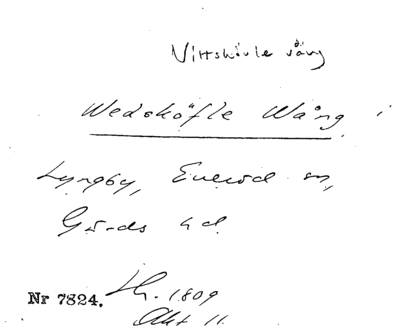 Vittskövle vång
Wedsköfle Wång i
Lyngby, Everöd sn,
Gärds hd
Nr 7824. Lh. 1809
Akt 11